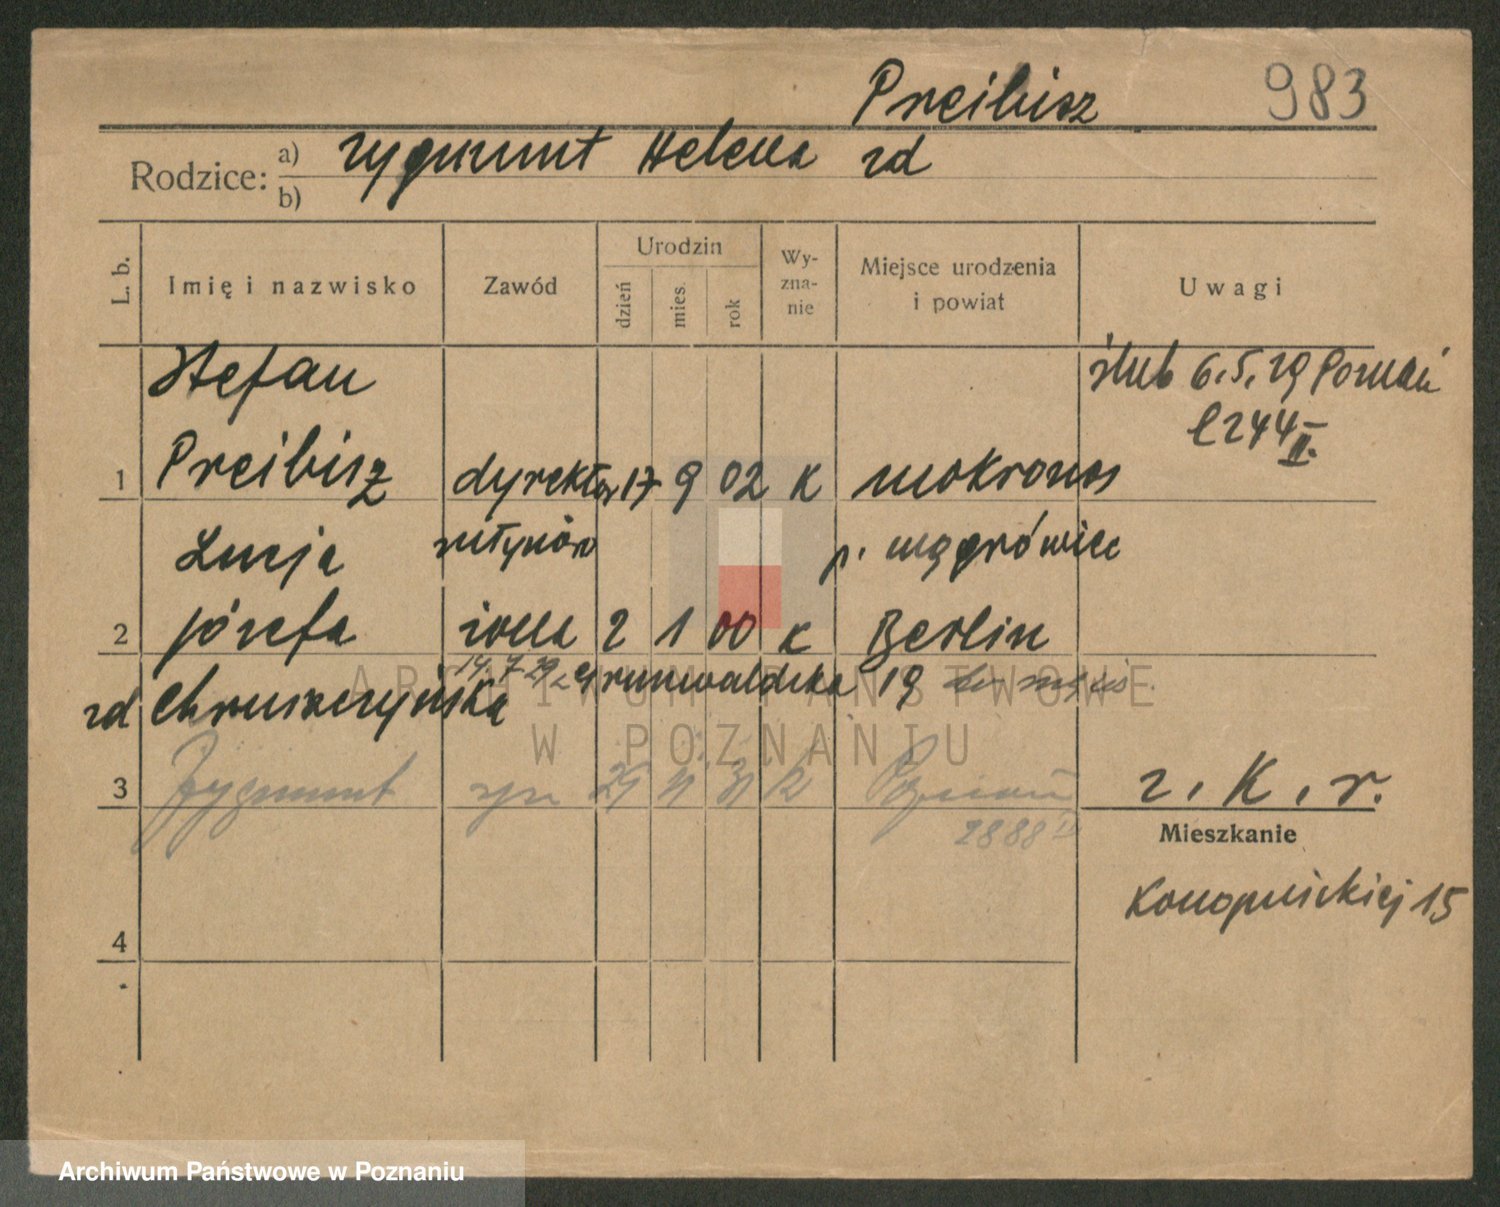 Preibisz 983
Rodzice: a) Zygmunt Helena zd
b)
L. b. Imię i nazwisko Zawód Urodzin dzień mies. rok Wyznanie Miejsce urodzenia i powiat Uwagi
Stefan ślub 6.5.29 Poznań
l 244 II.
1 Preibisz dyrektor 17 9 02 K Mokronos
Łucja młynów p. Wągrówiec
2 Józefa żona 2 1 00 K Berlin
14.7.29 z Grunwaldzka 19
zd Chruszczyńska
3 Zygmunt syn 29 11 31 k Poznań z. K. r.
2888 IV
Mieszkanie
Konopnickiej 15
4
ARCHIWUM PAŃSTWOWE
W POZNANIU
Archiwum Państwowe w Poznaniu